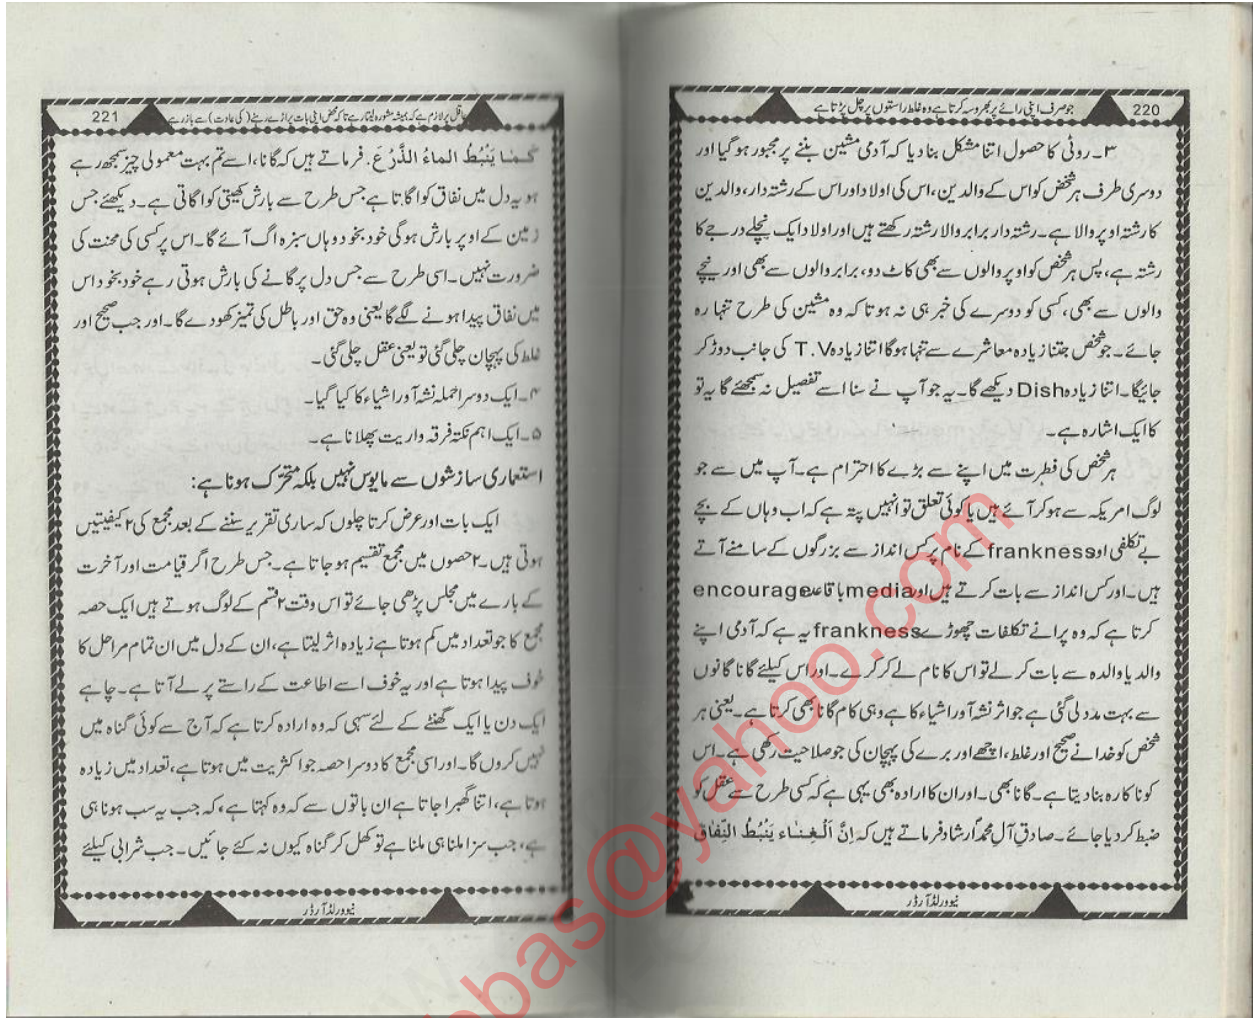 220
جو صرف اپنی رائے پر بھروسہ کرتا ہے وہ غلط راستوں پر چل پڑتا ہے
۳۔ روٹی کا حصول اتنا مشکل بنا دیا کہ آدمی مشین بننے پر مجبور ہو گیا اور
دوسری طرف ہر شخص کو اس کے والدین، اس کی اولاد اور اس کے رشتہ دار، والدین
کا رشتہ اوپر والا ہے۔ رشتہ دار برابر والا رشتہ رکھتے ہیں اور اولاد ایک نچلے درجے کا
رشتہ ہے، پس ہر شخص کو اوپر والوں سے بھی کاٹ دو، برابر والوں سے بھی اور نیچے
والوں سے بھی، کسی کو دوسرے کی خبر ہی نہ ہو تا کہ وہ مشین کی طرح تنہا رہ
جائے۔ جو شخص جتنا زیادہ معاشرے سے تنہا ہوگا اتنا زیادہ T.V کی جانب دوڑ کر
جائیگا۔ اتنا زیادہ Dish دیکھے گا۔ یہ جو آپ نے سنا اسے تفصیل نہ سمجھئے گا یہ تو
کا ایک اشارہ ہے۔
ہر شخص کی فطرت میں اپنے سے بڑے کا احترام ہے۔ آپ میں سے جو
لوگ امریکہ سے ہو کر آئے ہیں یا کوئی تعلق تو انہیں پتہ ہے کہ اب وہاں کے بچے
بے تکلفی اور frankness کے نام پر کس انداز سے بزرگوں کے سامنے آتے
ہیں۔ اور کس انداز سے بات کرتے ہیں اور media باقاعدہ encourage
کرتا ہے کہ وہ پرانے تکلفات چھوڑے frankness یہ ہے کہ آدمی اپنے
والد یا والدہ سے بات کرلے تو اس کا نام لے کر کرے۔ اور اس کیلئے گانا گانوں
سے بہت مدد لی گئی ہے جو اثر نشہ آور اشیاء کا ہے وہی کام گانا بھی کرتا ہے۔ یعنی ہر
شخص کو خدا نے صحیح اور غلط، اچھے اور برے کی پہچان کی جو صلاحیت رکھی ہے۔ اس
کو ناکارہ بنا دیتا ہے۔ گانا بھی۔ اور ان کا ارادہ بھی یہی ہے کہ کسی طرح سے عقل کو
ضبط کر دیا جائے۔ صادقِ آلِ محمدؐ ارشاد فرماتے ہیں کہ اِنَّ الْغِنَاء يَنْبُطُ النِّفَاقَ
نیو ورلڈ آرڈر
221
عاقل پر لازم ہے کہ ہمیشہ مشورہ لیتا رہے تاکہ محض اپنی بات پر اڑے رہنے (کی عادت) سے باز رہے
كَمَا يَنْبُطُ الماءُ الذَّرْعَ. فرماتے ہیں کہ گانا، اسے تم بہت معمولی چیز سمجھ رہے
ہو یہ دل میں نفاق کو اگاتا ہے جس طرح سے بارش کھیتی کو اگاتی ہے۔ دیکھئے جس
زمین کے اوپر بارش ہوگی خود بخود وہاں سبزہ اگ آئے گا۔ اس پر کسی کی محنت کی
ضرورت نہیں۔ اسی طرح سے جس دل پر گانے کی بارش ہوتی رہے خود بخود اس
میں نفاق پیدا ہونے لگے گا یعنی وہ حق اور باطل کی تمیز کھو دے گا۔ اور جب صحیح اور
غلط کی پہچان چلی گئی تو یعنی عقل چلی گئی۔
۴۔ ایک دوسرا حملہ نشہ آور اشیاء کا کیا گیا۔
۵۔ ایک اہم نکتہ فرقہ واریت پھلانا ہے۔
استعماری سازشوں سے مایوس نہیں بلکہ متحرّک ہونا ہے:
ایک بات اور عرض کرتا چلوں کہ ساری تقریر سننے کے بعد مجمع کی ۲ کیفیتیں
ہوتی ہیں۔ ۲ حصوں میں مجمع تقسیم ہو جاتا ہے۔ جس طرح اگر قیامت اور آخرت
کے بارے میں مجلس پڑھی جائے تو اس وقت ۲ قسم کے لوگ ہوتے ہیں ایک حصہ
مجمع کا جو تعداد میں کم ہوتا ہے زیادہ اثر لیتا ہے، ان کے دل میں ان تمام مراحل کا
خوف پیدا ہوتا ہے اور یہ خوف اسے اطاعت کے راستے پر لے آتا ہے۔ چاہے
ایک دن یا ایک گھنٹے کے لئے سہی کہ وہ ارادہ کرتا ہے کہ آج سے کوئی گناہ میں
نہیں کروں گا۔ اور اسی مجمع کا دوسرا حصہ جو اکثریت میں ہوتا ہے، تعداد میں زیادہ
ہوتا ہے، اتنا گھبرا جاتا ہے ان باتوں سے کہ وہ کہتا ہے، کہ جب یہ سب ہونا ہی
ہے، جب سزا ملنا ہی ملنا ہے تو کھل کر گناہ کیوں نہ کئے جائیں۔ جب شرابی کیلئے
نیو ورلڈ آرڈر
bas@yahoo.com